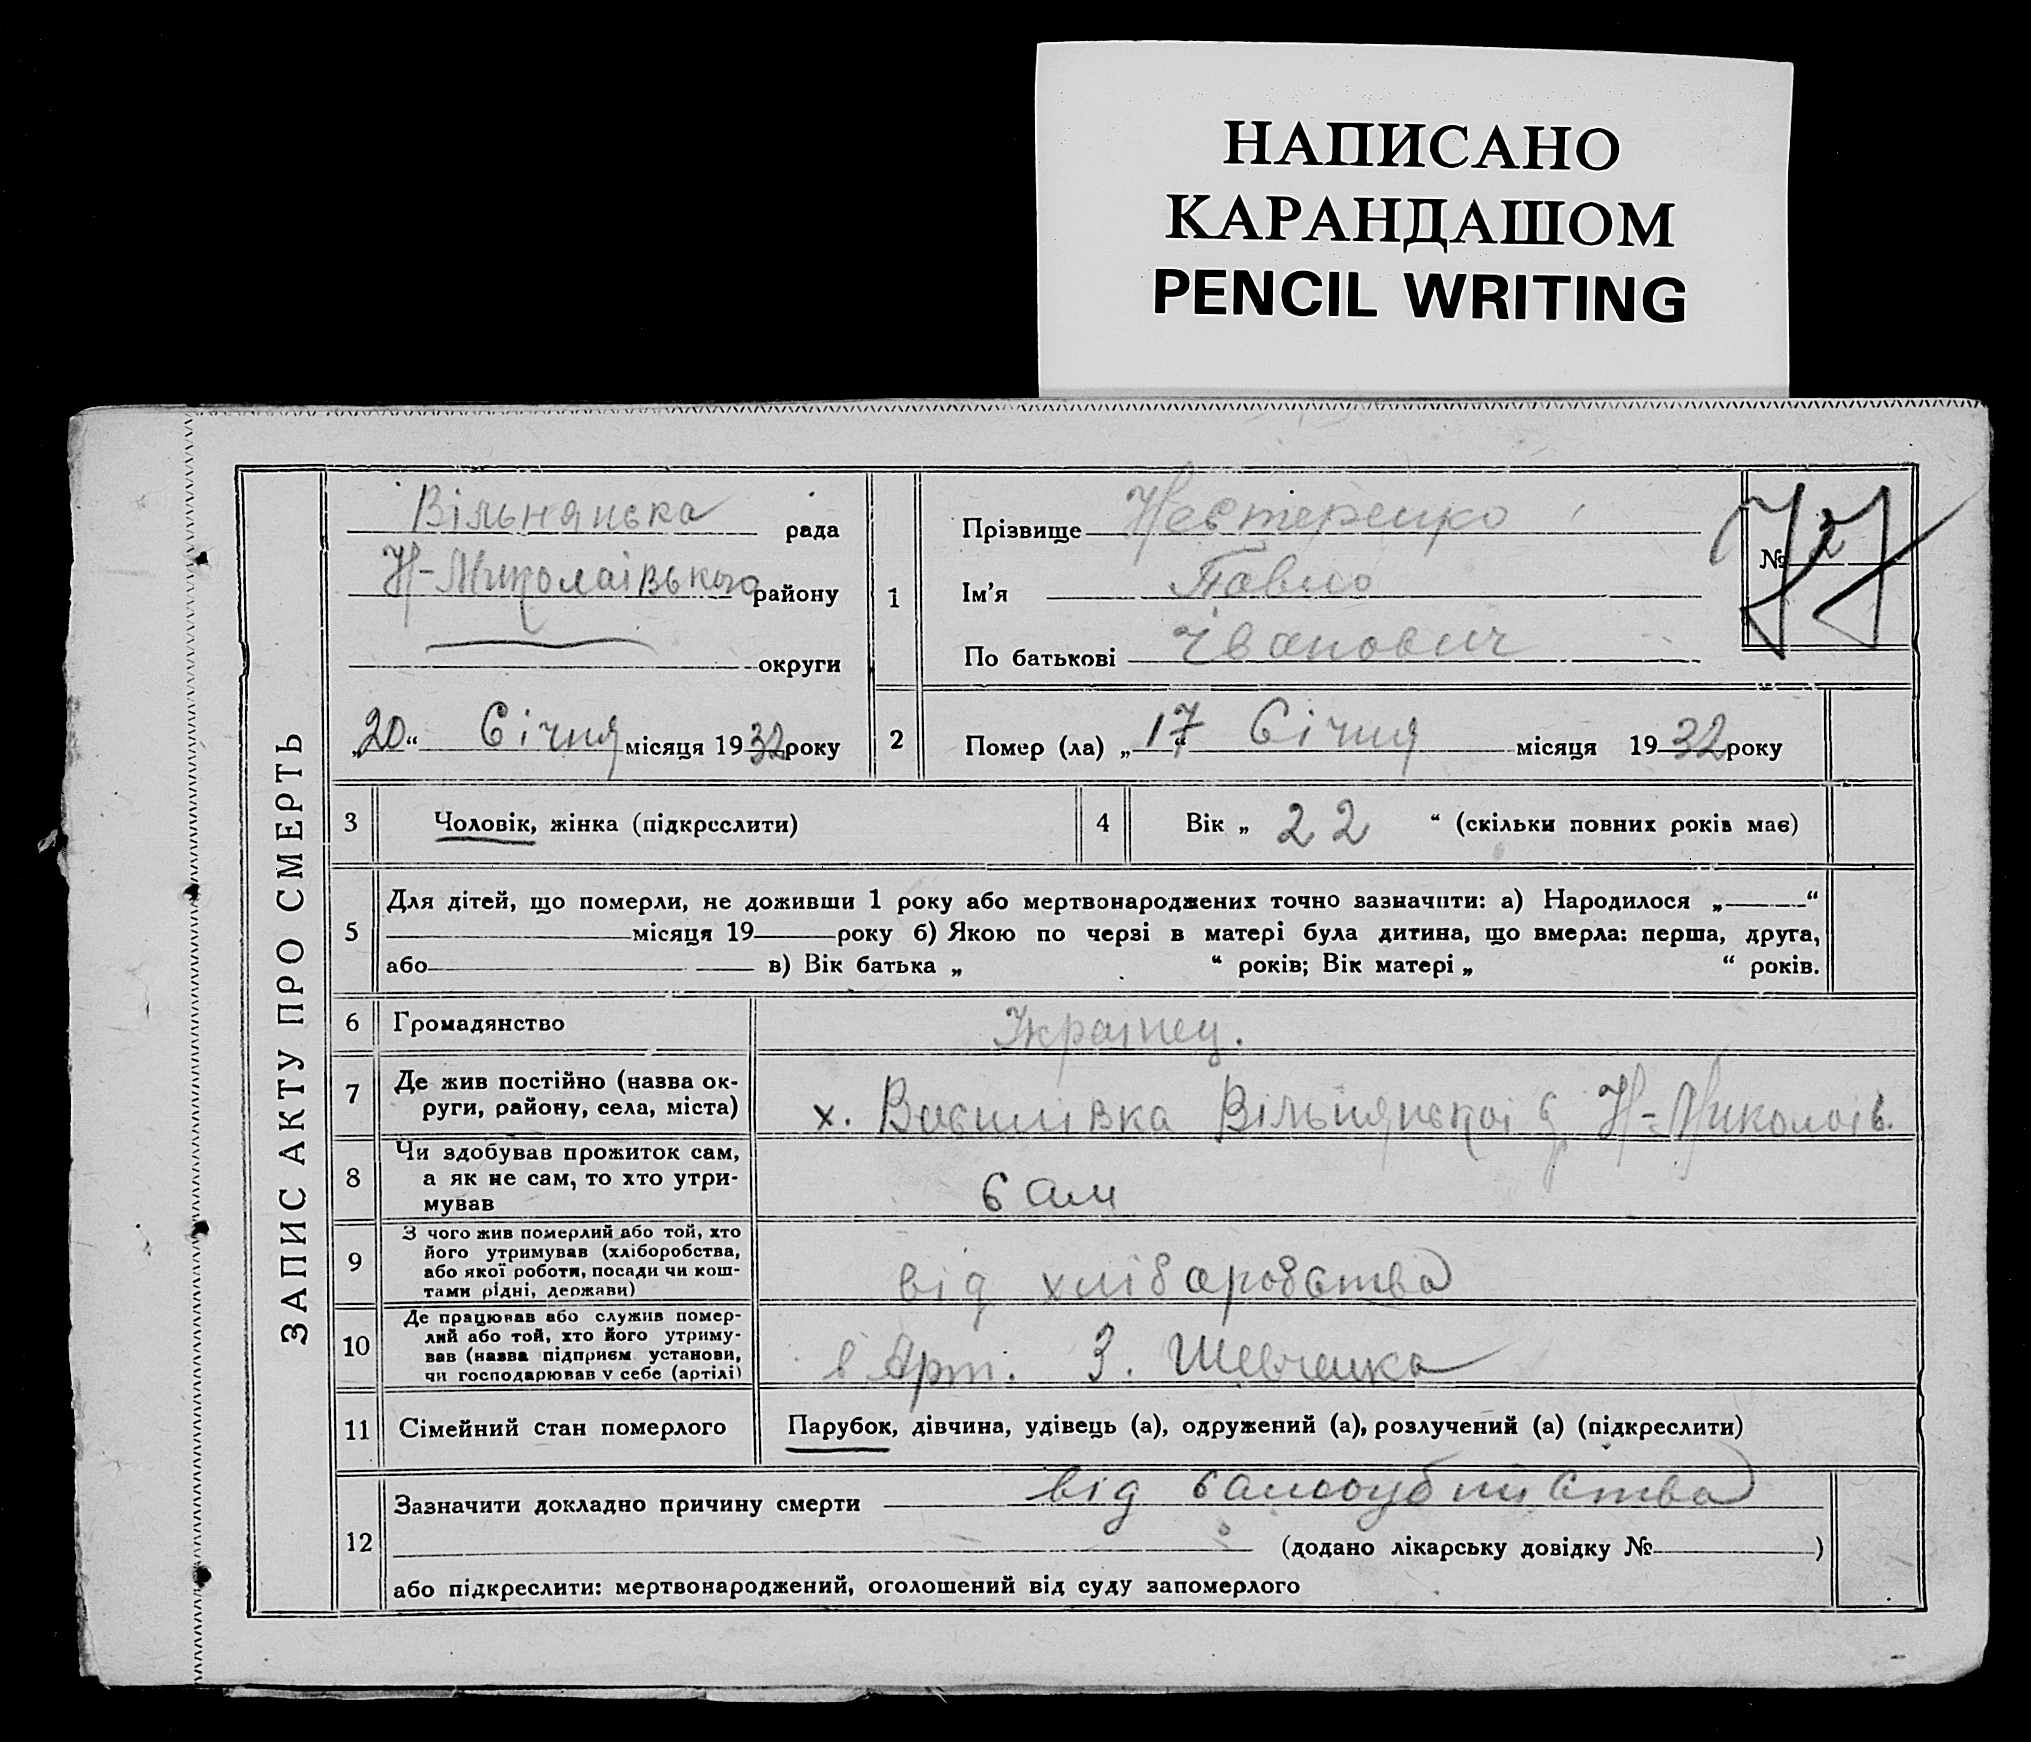 НАПИСАНО
КАРАНДАШОМ
PENCIL WRITING
ЗАПИС АКТУ ПРО СМЕРТЬ
Вільнянська рада
Н-Миколаівського району
округи
„20“ Січня місяця 1932 року
1
Прізвище Нестеренко
Ім'я Павло
По батькові Іванович
№ 2
2 Помер (ла) „17“ Січня місяця 1932 року
3 Чоловік, жінка (підкреслити)
4 Вік „ 22 “ (скільки повних років має)
5
Для дітей, що померли, не доживши 1 року або мертвонароджених точно зазначити: а) Народилося „ “
місяця 19 року б) Якою по черзі в матері була дитина, що вмерла: перша, друга,
або в) Вік батька „ “ років; Вік матері „ “ років.
6 Громадянство Украінец.
7 Де жив постійно (назва ок-
руги, району, села, міста)
х. Василівка Вільнянськоі Н-Миколаів.
8 Чи здобував прожиток сам,
а як не сам, то хто утри-
мував
сам
9 З чого жив померлий або той, хто
його утримував (хліборобства,
або якої роботи, посади чи кош-
тами рідні, держави)
від хлібаробства
10 Де працював або служив помер-
лий або той, хто його утриму-
вав (назва підприєм установи,
чи господарював у себе (артілі)
в Арт. З. Шевченка
11 Сімейний стан померлого Парубок, дівчина, удівець (а), одружений (а), розлучений (а) (підкреслити)
12
Зазначити докладно причину смерти від самоубийства
(додано лікарську довідку № )
або підкреслити: мертвонароджений, оголошений від суду запомерлого